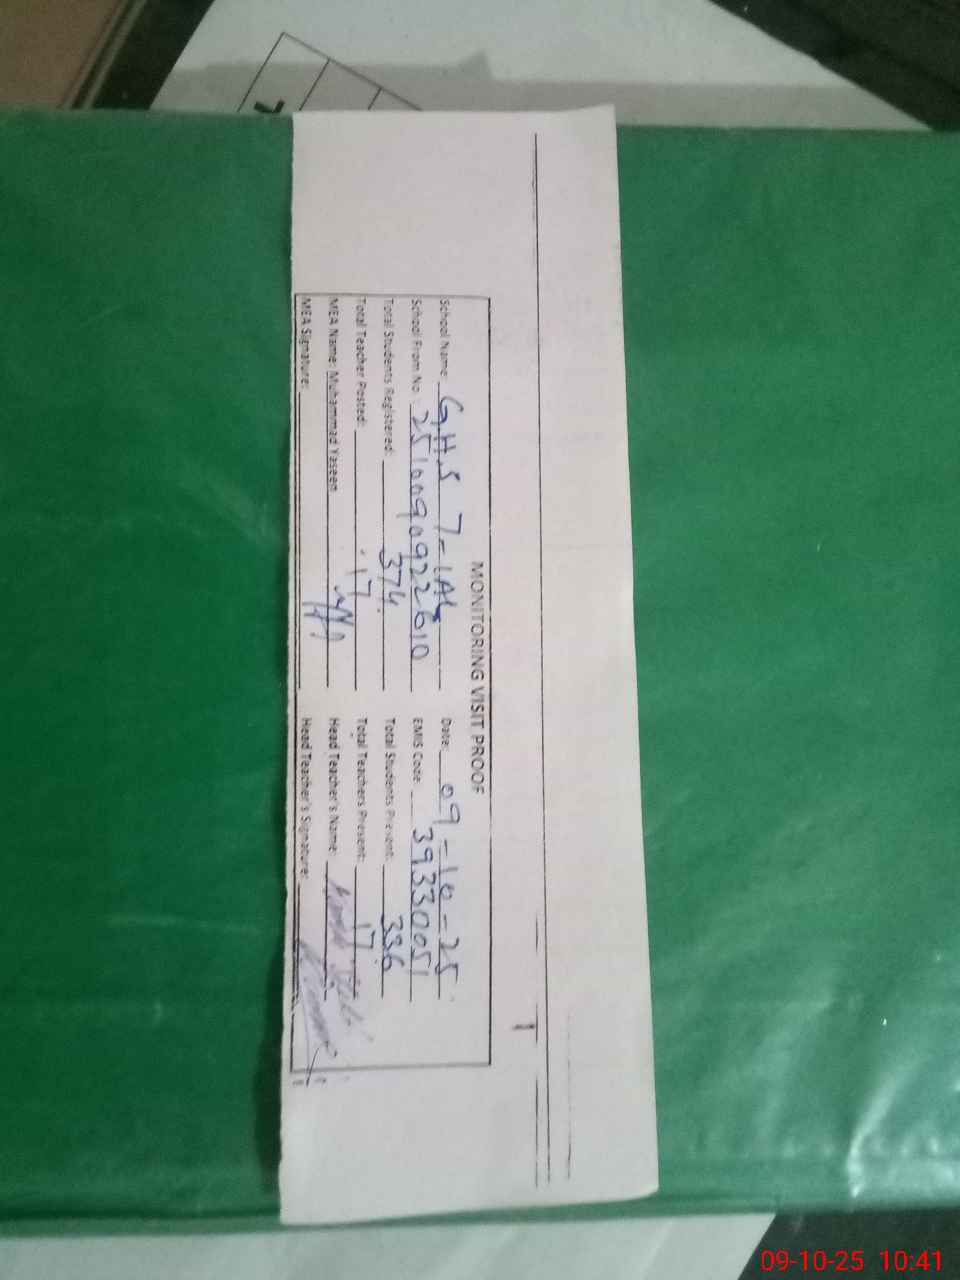 MONITORING VISIT PROOF
School Name: G.H.S 7-1AL Date: 09-10-25
School From No. 2510090922610 EMIS Code 39330051
Total Students Registered: 374 Total Students Present: 336
Total Teacher Posted: 17 Total Teachers Present: 17
MEA Name: Muhammad Yaseen Head Teacher's Name:
MEA Signature: Head Teacher's Signature:
09-10-25 10:41